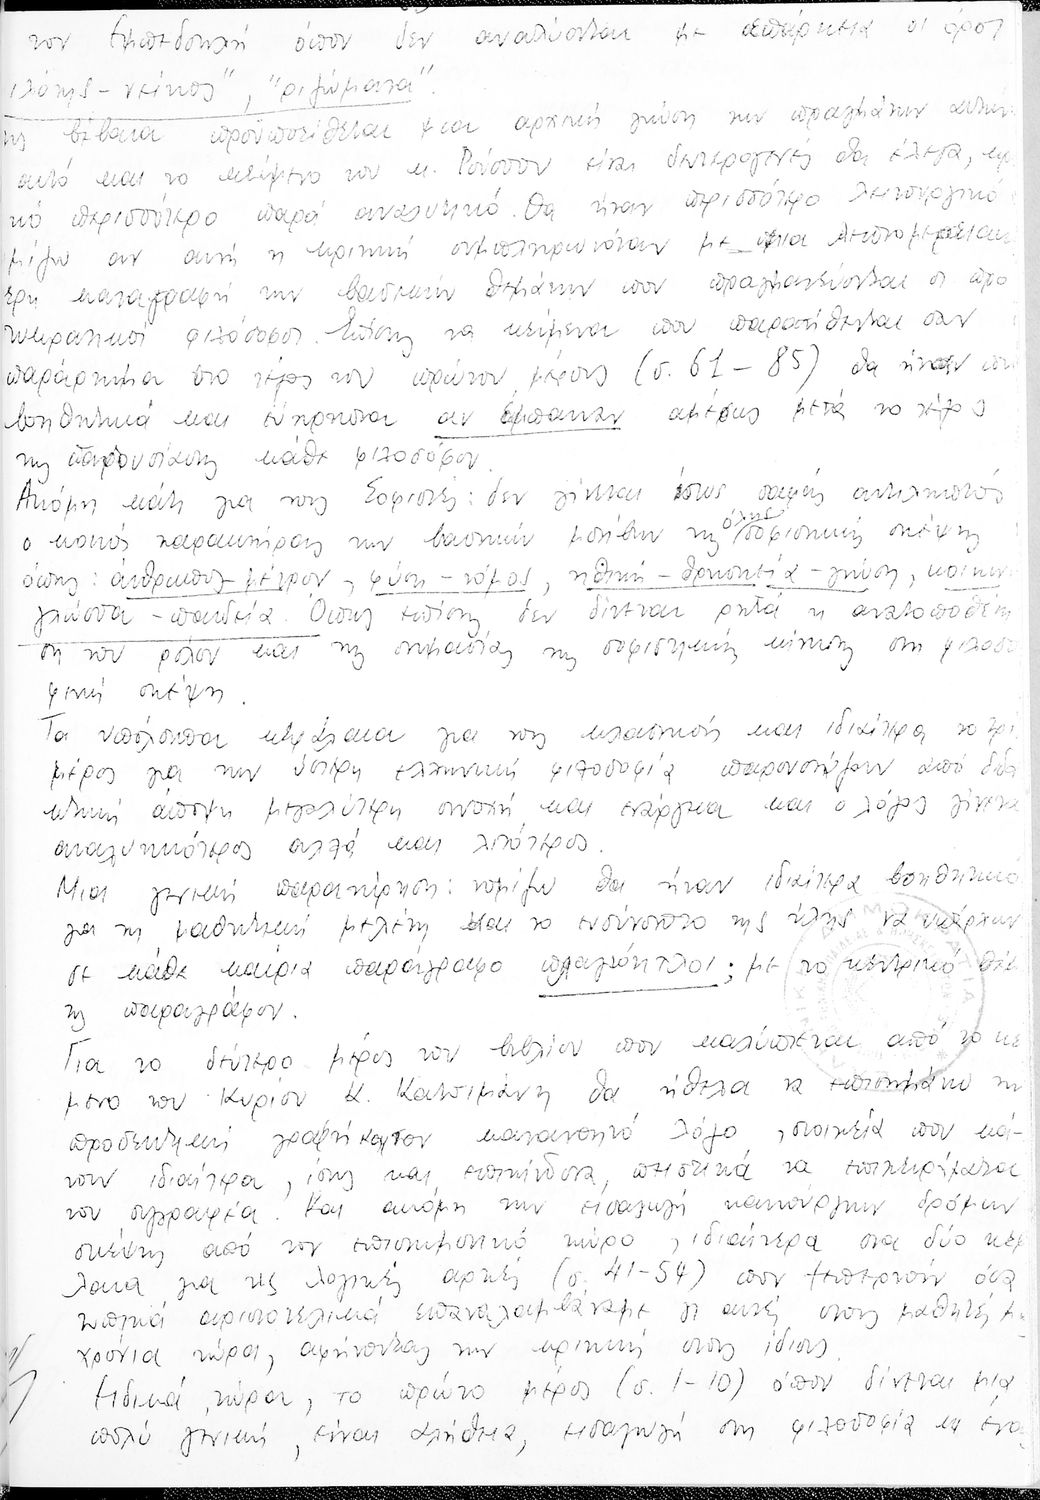 τον Εμπεδοκλή όπου δεν αναλύονται με επάρκεια οι όροι
ιλότης – νείκος", "ριζώματα".
ης βέβαια προϋποτίθεται μια αρχική γνώση των πραγμάτων αυτών
αυτό και το κείμενο του κ. Ρούσσου είναι δευτερογενές θα έλεγα, κρι
κό περισσότερο παρά αναλυτικό. Θα ήταν περισσότερο λειτουργικό
μίζω αν αυτή η κριτική συμπληρωνόταν με μια λεπτομερεια
ερη καταγραφή των βασικών θεμάτων που πραγματεύονται οι προ
σωκρατικοί φιλόσοφοι. Επίσης τα κείμενα που παρατίθενται σαν
παράρτημα στο τέλος του πρώτου μέρους (σ. 61 – 85) θα ήταν πιο
βοηθητικά και εύχρηστα αν έμπαιναν αμέσως μετά το τέλος
της παρουσίασης κάθε φιλοσόφου.
Ακόμη κάτι για τους Σοφιστές: δεν γίνεται ίσως σαφώς αντιληπτός
ο κοινός χαρακτήρας των βασικών μοτίβων της όλης σοφιστικής σκέψης
όπως: άνθρωπος – μέτρον, φύση – νόμος, ηθική – θρησκεία – γνώση, κοινων
γλώσσα – παιδεία. Όπως επίσης δεν δίνεται ρητά η ανατοποθέτη
ση του ρόλου και της σημασίας της σοφιστικής κίνησης στη φιλοσο
φική σκέψη.
Τα υπόλοιπα κεφάλαια για τους κλασικούς και ιδιαίτερα το τρί
μέρος για την ύστερη ελληνική φιλοσοφία παρουσιάζουν από διδα
κτική άποψη μεγαλύτερη συνοχή και ενάργεια και ο λόγος γίνετα
αναλυτικότερος αλλά και λιτότερος.
Μια γενική παρατήρηση: νομίζω θα ήταν ιδιαίτερα βοηθητικό
για τη μαθητική μελέτη και το ευσύνοπτο της ύλης να υπάρχουν
σε κάθε καίρια παράγραφο πλαγιότιτλοι; με το κεντρικό θέμ
της παραγράφου.
Για το δεύτερο μέρος του βιβλίου που καλύπτεται από το κε
μενο του Κυρίου Κ. Κατσιμάνη θα ήθελα να επισημάνω τη
προδεκτική γραφή και τον κατανοητό λόγο, στοιχεία που κά-
νουν ιδιαίτερα, ίσως και επικίνδυνα, πειστικά τα επιχειρήματα
του συγγραφέα. Και ακόμη την εισαγωγή καινούργιων δρόμων
σκέψης από τον επιστημονικό χώρο, ιδιαίτερα στα δύο κεφ
λαια για τις λογικές αρχές (σ. 41-54) που ξεπερνούν όσα
τυπικά αριστοτελικά επαναλαμβάναμε γι αυτές στους μαθητές μ
χρόνια τώρα, αφήνοντας την κριτική στους ίδιους.
Ειδικά τώρα, το πρώτο μέρος (σ. 1-10) όπου δίνεται μια
πολύ γενική, είναι αλήθεια, εισαγωγή στη φιλοσοφία με ένα